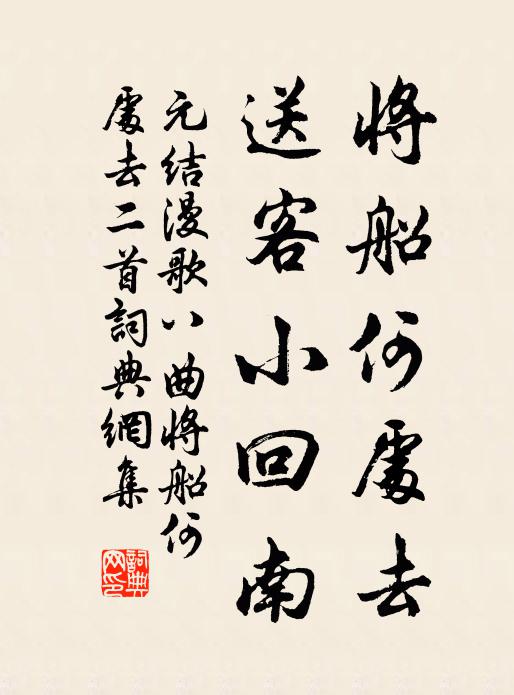 將船何處去
送客小回南
元结漫歌八曲將船何
處去二首詞典網集
詞典
网印